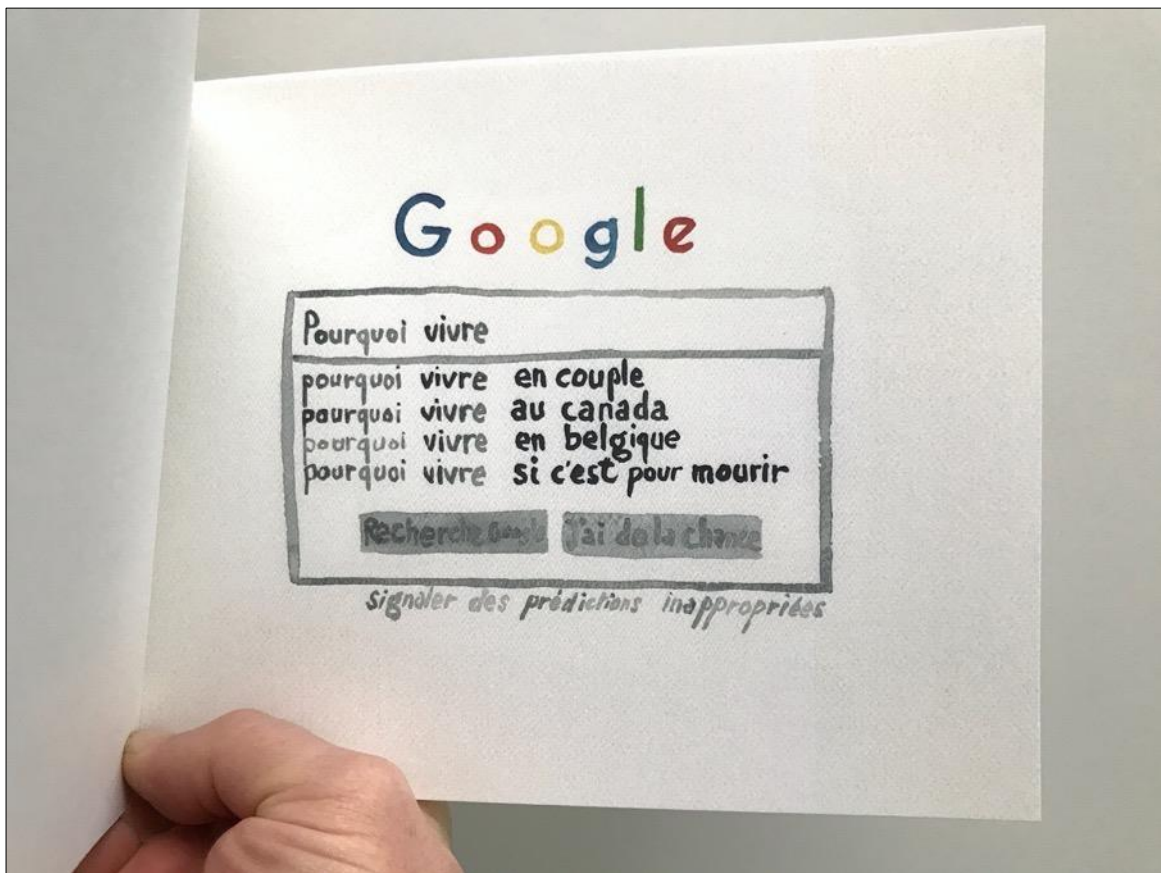 Google
Pourquoi vivre
pourquoi vivre en couple
pourquoi vivre au canada
pourquoi vivre en belgique
pourquoi vivre si c'est pour mourir
Recherche Google J'ai de la chance
signaler des prédictions inappropriées